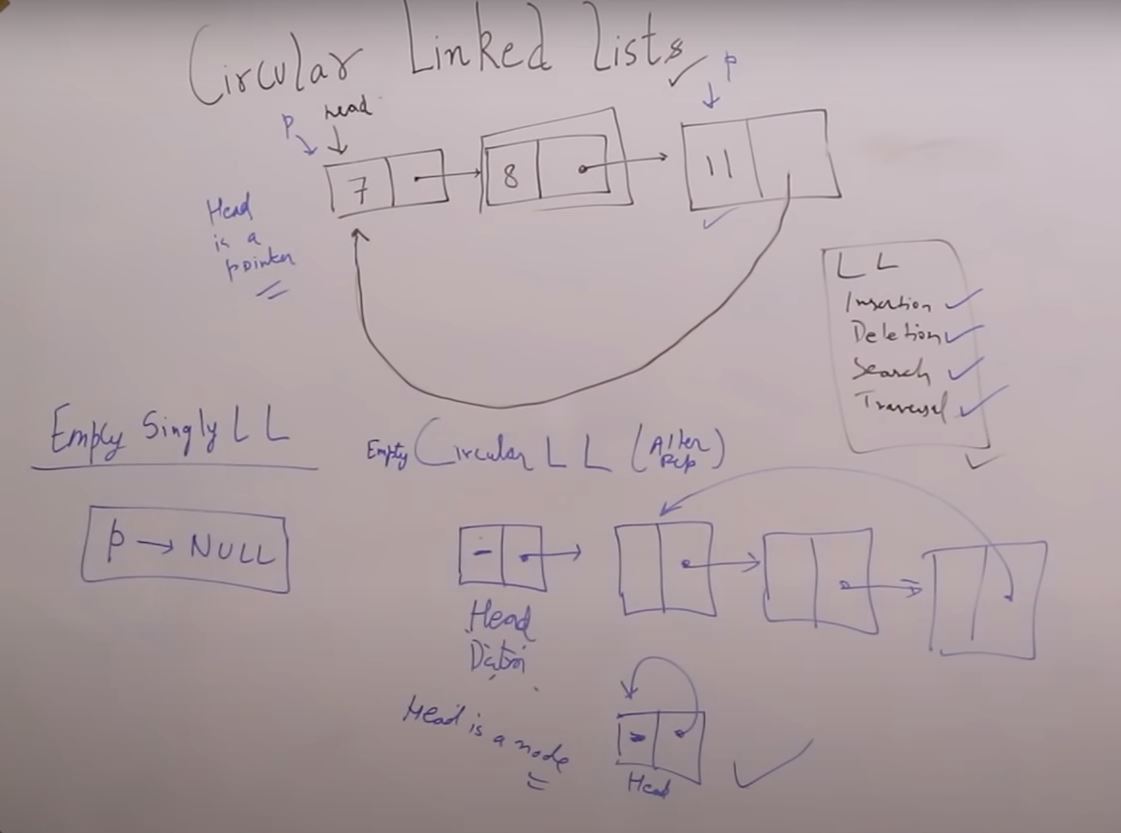 Circular Linked Lists
p
head
p
7
8
11
Head
is a
pointer
LL
Insertion
Deletion
Search
Traversal
Empty Singly LL
p → NULL
Empty Circular LL (Alter
Rep)
-
Head
Head is a node
-
Head